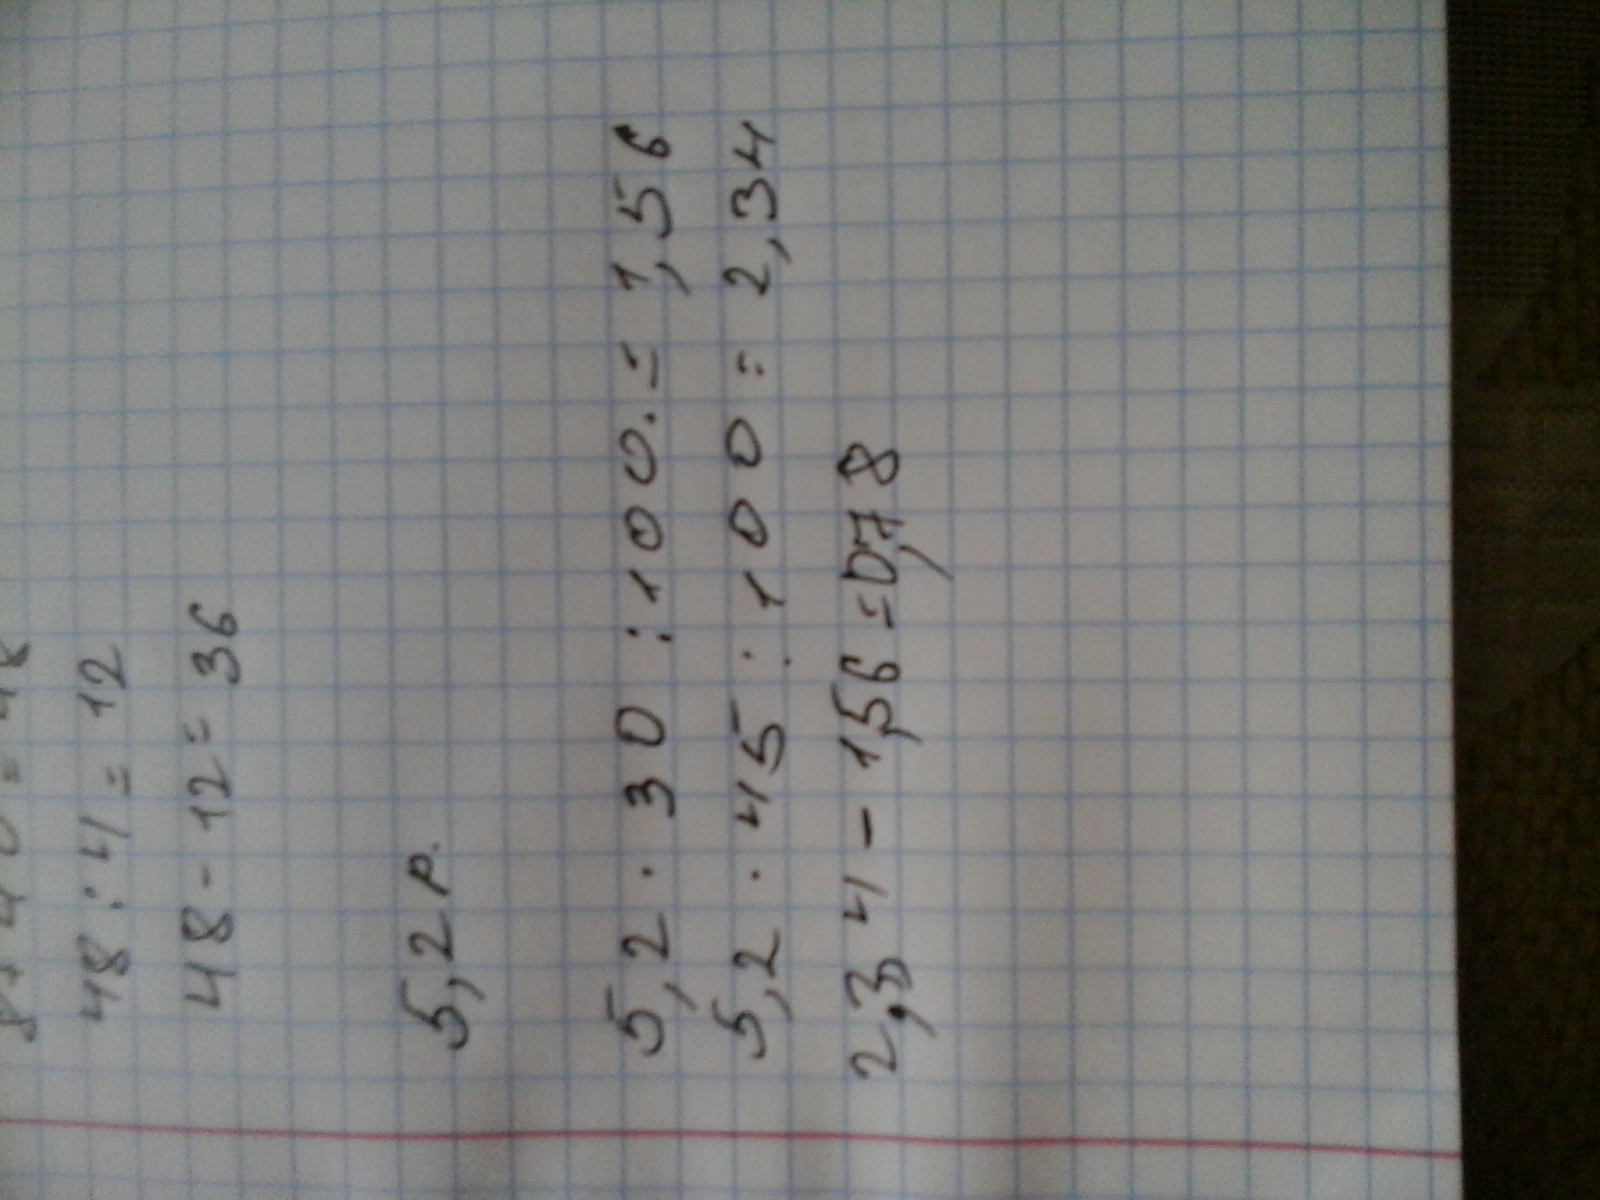 48 : 4 = 12
48 - 12 = 36
5,2 р.
5,2 · 30 : 100. = 1,56
5,2 · 45 : 100 = 2,34
2,34 - 1,56 = 0,78